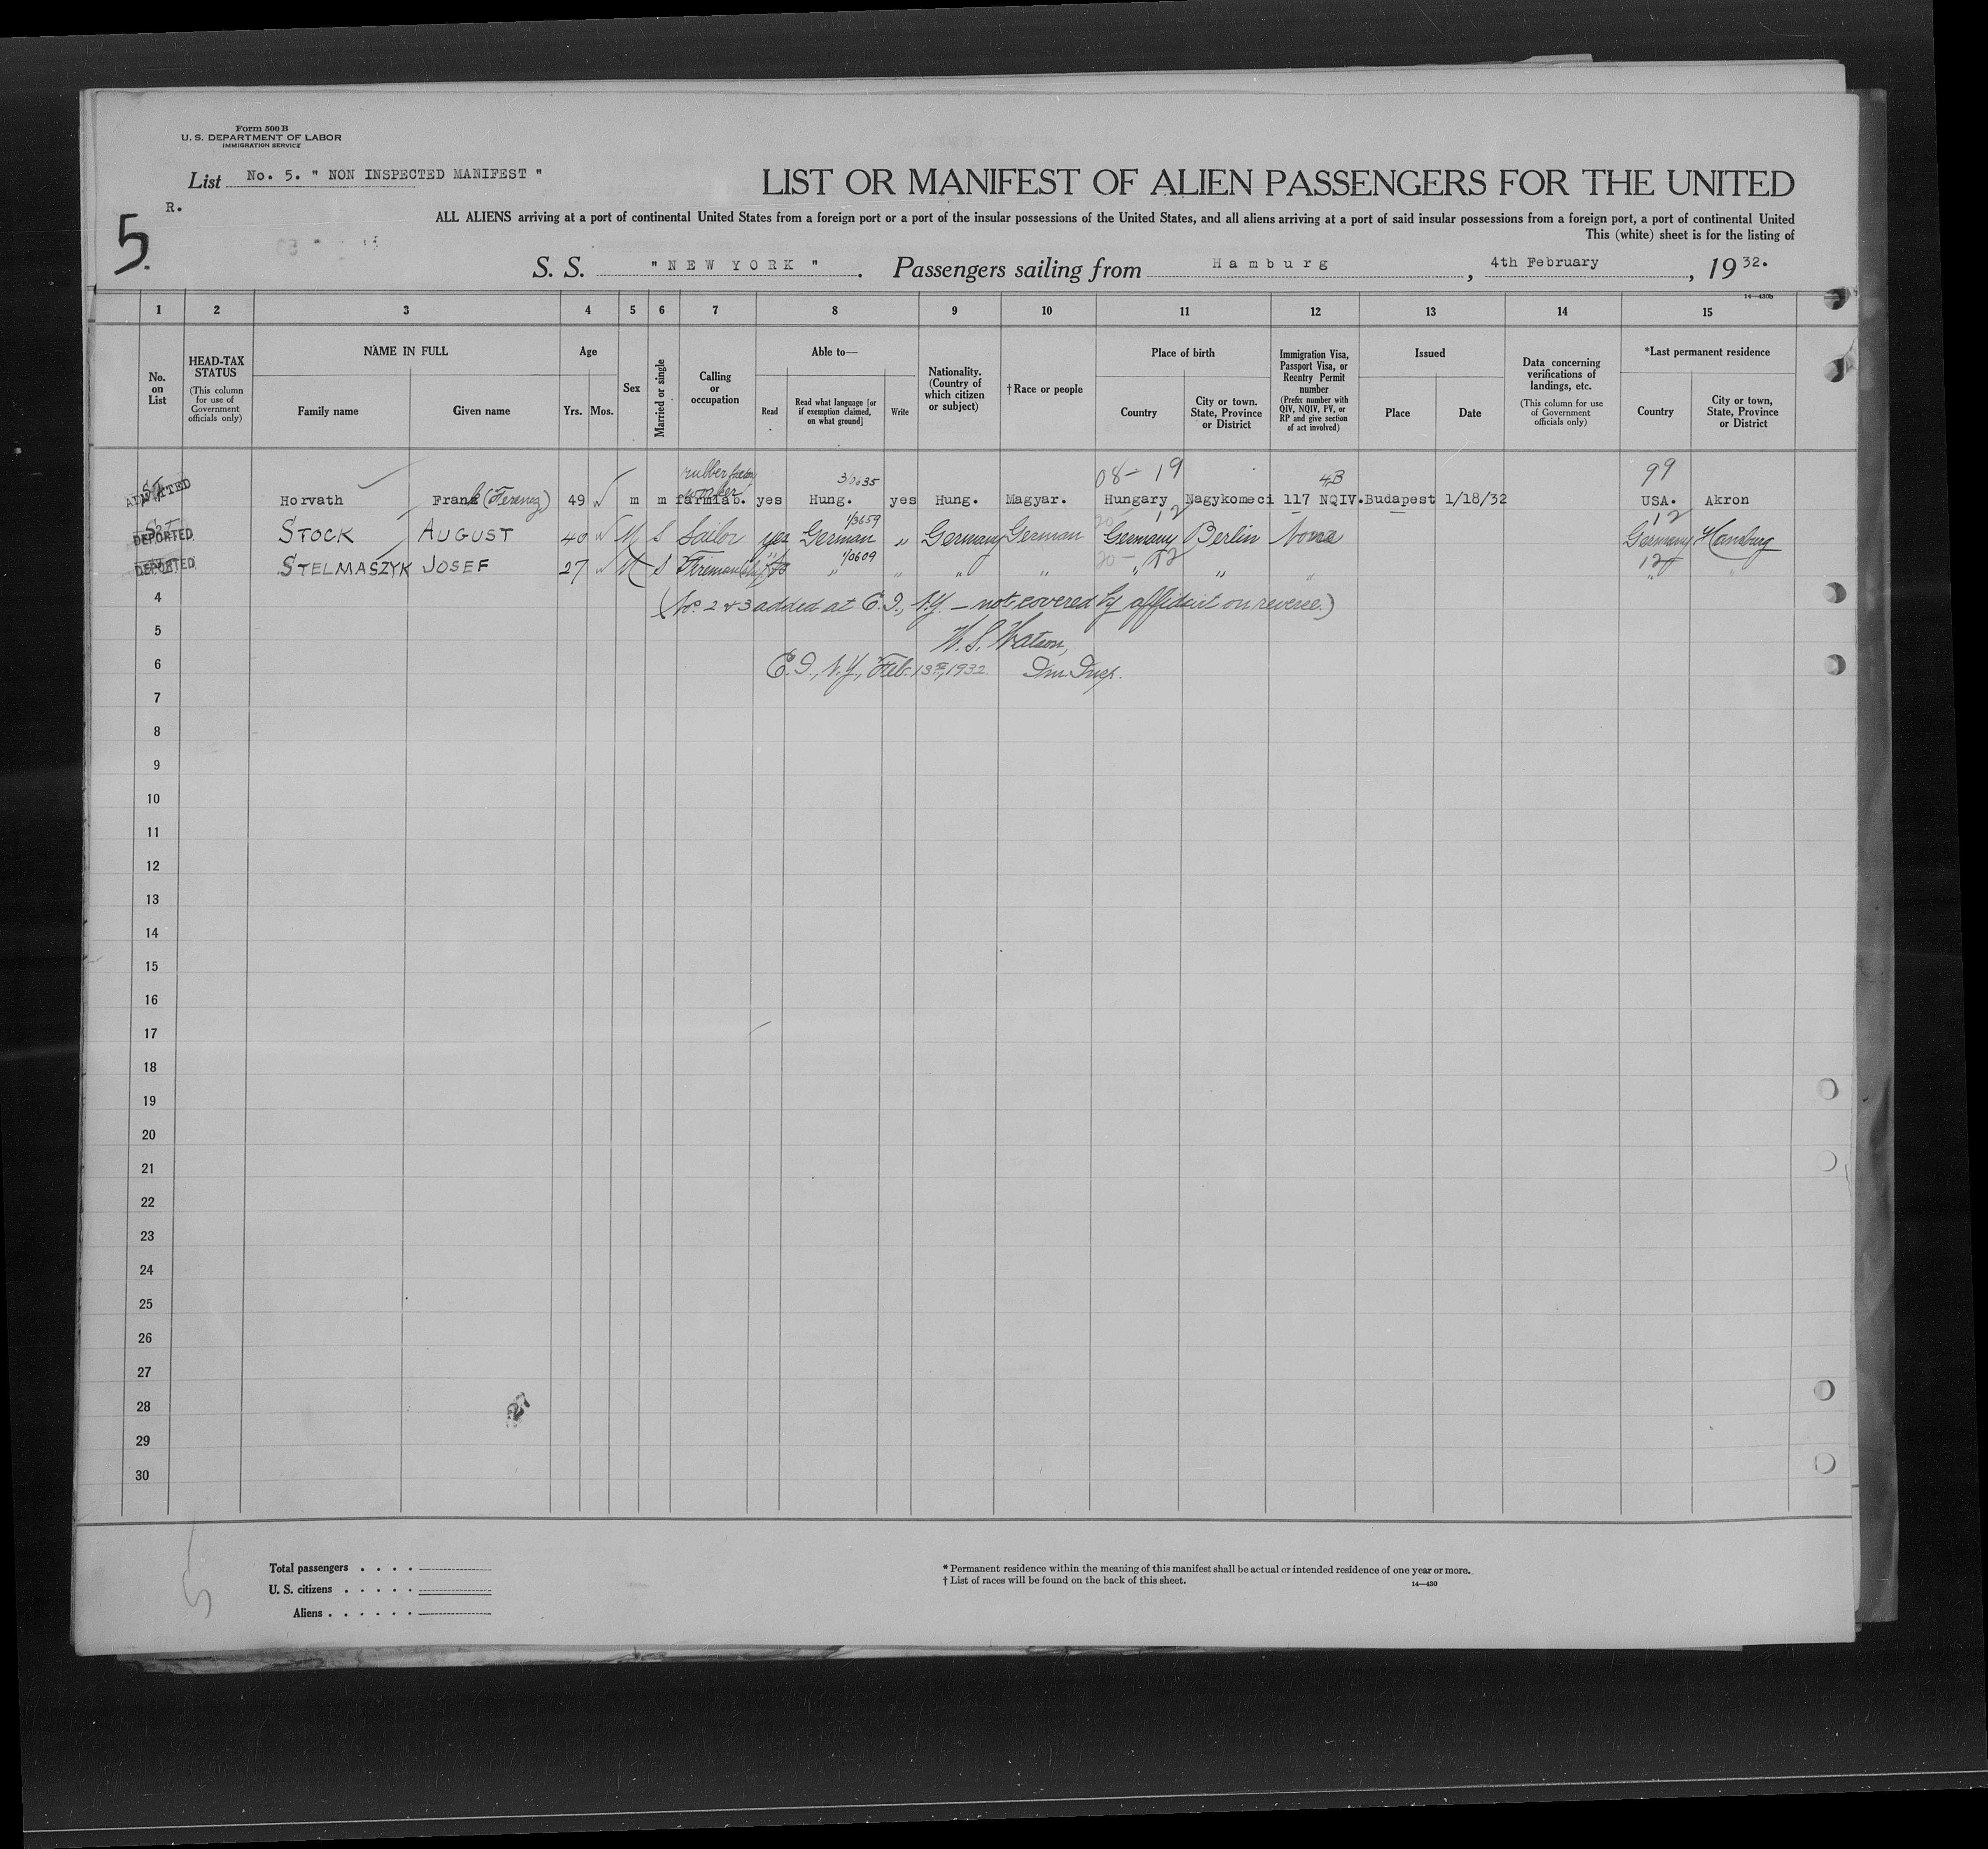 Form 500 B
U. S. DEPARTMENT OF LABOR
IMMIGRATION SERVICE
List No. 5. " NON INSPECTED MANIFEST "
R.
5.
LIST OR MANIFEST OF ALIEN PASSENGERS FOR THE UNITED
ALL ALIENS arriving at a port of continental United States from a foreign port or a port of the insular possessions of the United States, and all aliens arriving at a port of said insular possessions from a foreign port, a port of continental United
This (white) sheet is for the listing of
S. S. " NEW YORK ". Passengers sailing from Hamburg, 4th February, 1932.
14—430b
1 2 3 4 5 6 7 8 9 10 11 12 13 14 15
No. on List
HEAD-TAX STATUS
(This column for use of Government officials only)
NAME IN FULL
Family name
Given name
Age
Yrs. Mos.
Sex
Married or single
Calling or occupation
Able to—
Read
Read what language [or if exemption claimed, on what ground]
Write
Nationality. (Country of which citizen or subject)
†Race or people
Place of birth
Country
City or town. State, Province or District
Immigration Visa, Passport Visa, or Reentry Permit number
(Prefix number with QIV, NQIV, PV, or RP and give section of act involved)
Issued
Place
Date
Data concerning verifications of landings, etc.
(This column for use of Government officials only)
*Last permanent residence
Country
City or town, State, Province or District
rubber factory worker 08-19 4B 99
ADMITTED Horvath Frank (Ferencz) 49 m m farmlab. yes Hung. yes Hung. Magyar. Hungary Nagykomeci 117 NQIV. Budapest 1/18/32 USA. Akron
1/3659 12 12
DEPORTED STOCK AUGUST 40 M S Sailor yes German " Germany German Germany Berlin None Germany Hamburg
1/0609 12 12
DEPORTED STELMASZYK JOSEF 27 M S Fireman " " " " " " " " "
4 (Nos. 2 & 3 added at E.I., N.Y. — not covered by affidavit on reverse.)
5 W. S. Watson,
6 E.I., N.Y., Feb. 13th, 1932. Imm. Insp.
7
8
9
10
11
12
13
14
15
16
17
18
19
20
21
22
23
24
25
26
27
28
29
30
5
Total passengers . . . .
U. S. citizens . . . . .
Aliens . . . . . .
* Permanent residence within the meaning of this manifest shall be actual or intended residence of one year or more.
† List of races will be found on the back of this sheet.
14—430